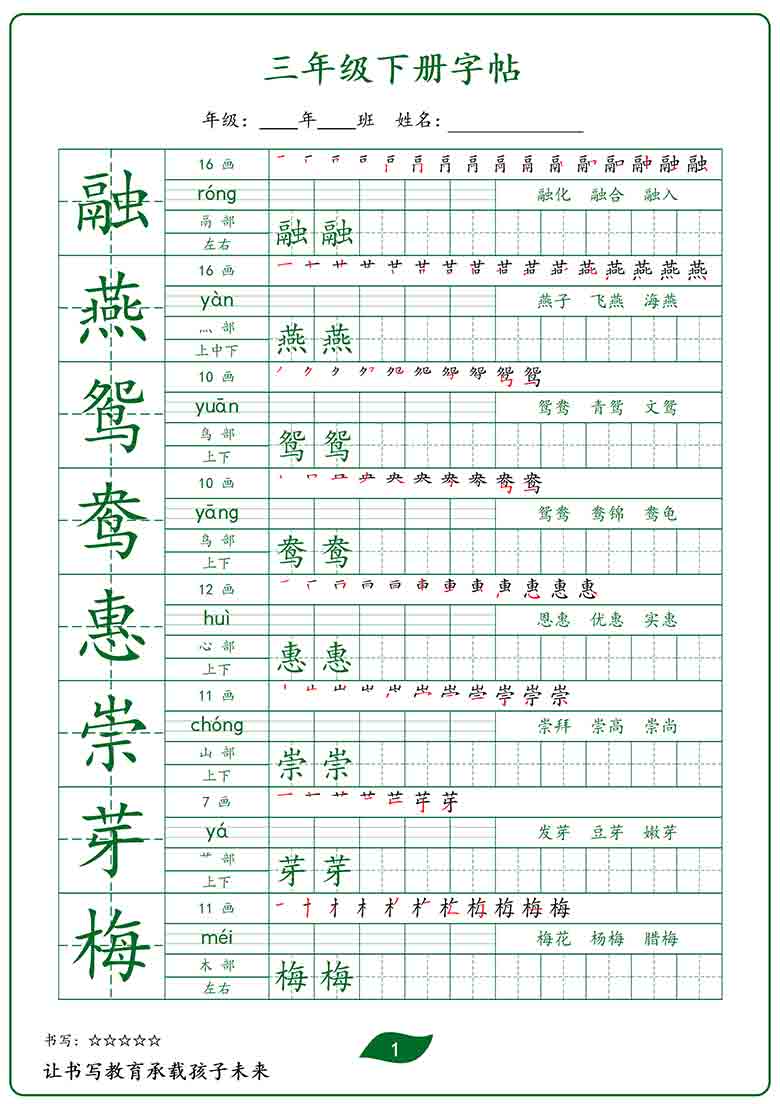 三年级下册字帖
年级：____年____班 姓名：______________
融
16 画
róng
融化 融合 融入
鬲 部
左右
融 融
燕
16 画
yàn
燕子 飞燕 海燕
灬 部
上中下
燕 燕
鸳
10 画
yuān
鸳鸯 青鸳 文鸳
鸟 部
上下
鸳 鸳
鸯
10 画
yāng
鸳鸯 鸯锦 鸯龟
鸟 部
上下
鸯 鸯
惠
12 画
huì
恩惠 优惠 实惠
心 部
上下
惠 惠
崇
11 画
chóng
崇拜 崇高 崇尚
山 部
上下
崇 崇
芽
7 画
yá
发芽 豆芽 嫩芽
艹 部
上下
芽 芽
梅
11 画
méi
梅花 杨梅 腊梅
木 部
左右
梅 梅
书写：☆☆☆☆☆
1
让书写教育承载孩子未来